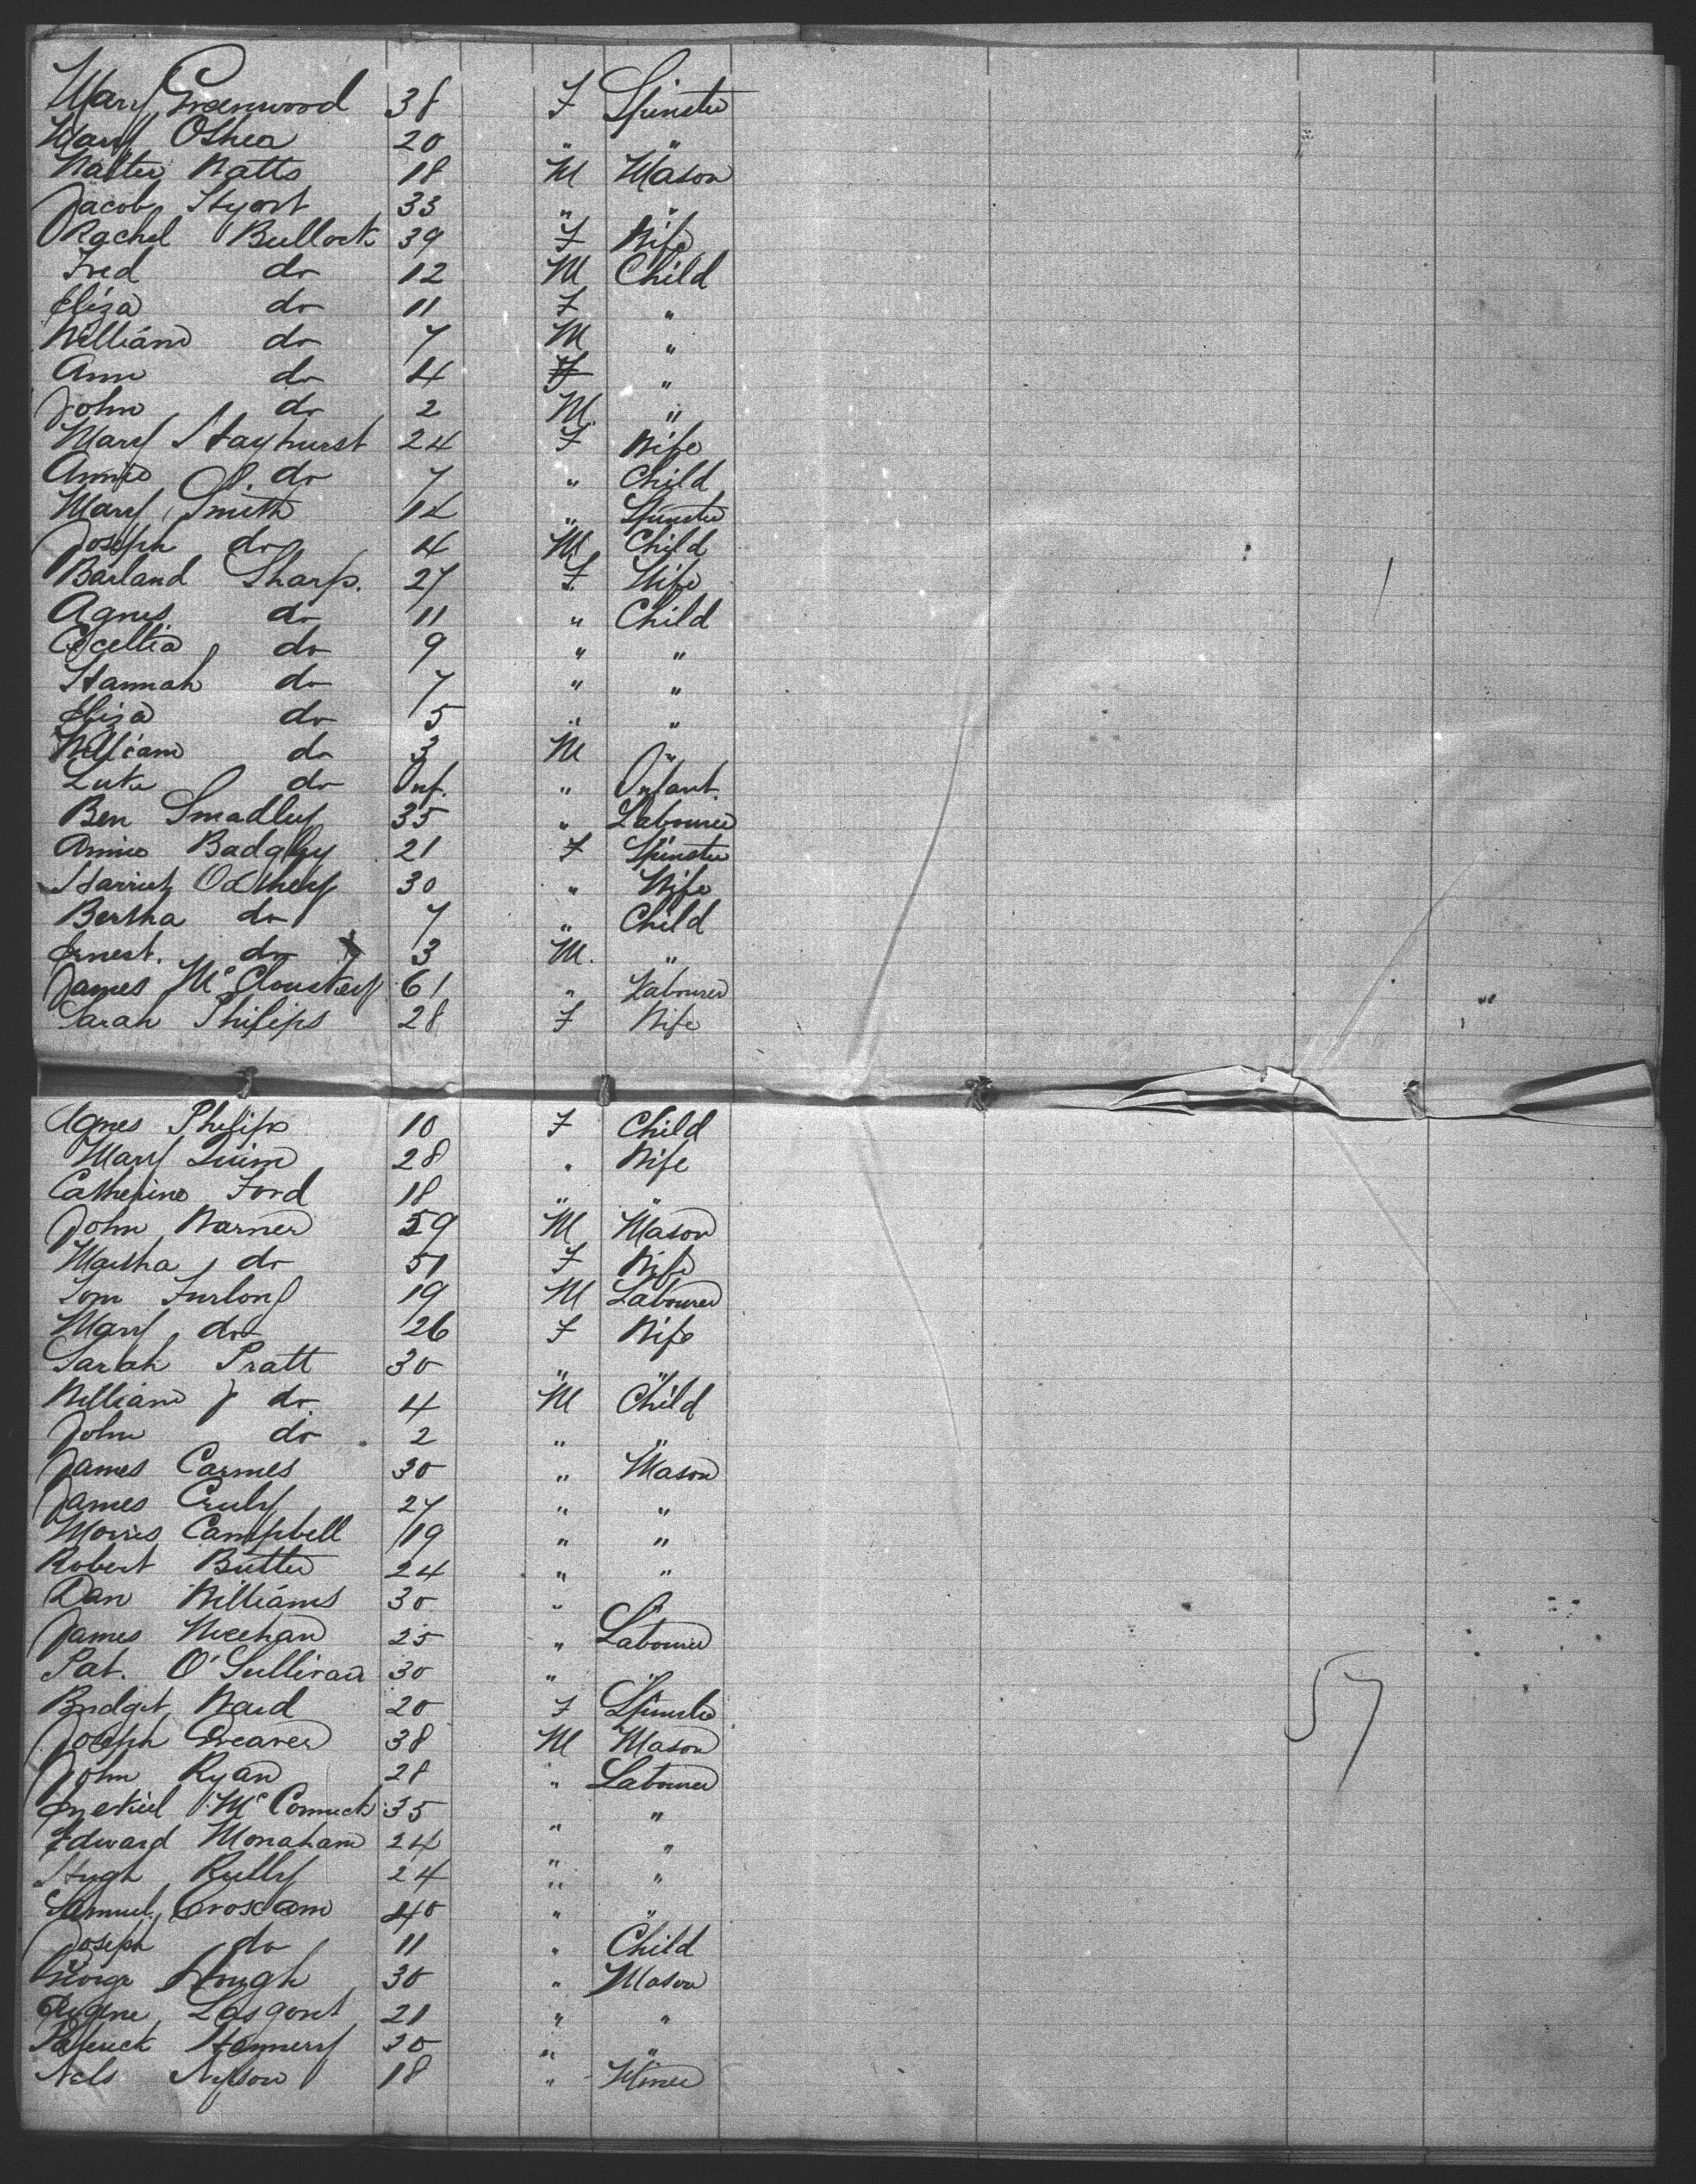 Mary Greenwood 38 F Spinster
Mary O'Shea 20 " "
Walter Watts 18 M Mason
Jacob 33 " "
Rachel Bullock 39 F Wife
Fred do 12 M Child
Eliza do 11 F "
William do 7 M "
Ann do 4 F "
John do 2 M "
Mary Hayhurst 24 F Wife
Annie do 7 " Child
Mary Smith 14 " Spinster
Joseph do 4 M Child
Barland Sharp. 27 F Wife
Agnes do 11 " Child
Cecellia do 9 " "
Hannah do 7 " "
Eliza do 5 " "
William do 3 M "
Luke do Inf. " Infant.
Ben Smadley 35 " Labourer
Annie Badgley 21 F Spinster
Harriet 30 " Wife
Bertha do 7 " Child
Ernest. do 3 M. "
James McCloustay 61 " Labourer
Sarah Philips 28 F Wife
Agnes Philips 10 F Child
Mary Quinn 28 " Wife
Catherine Ford 18 " "
John Warner 59 M Mason
Martha do 51 F Wife
Tom Furlong 19 M Labourer
Mary do 26 F Wife
Sarah Pratt 30 " "
William J do. 4 M Child
John do 2 " "
James Carmes 30 " Mason
James Cruly 27 " "
Morris Campbell 19 " "
Robert Butler 24 " "
Dan Williams 30 " "
James Meehan 25 " Labourer
Pat. O'Sullivan 30 " "
Bridget Ward 20 F Spinster
Joseph Greaves 38 M Mason
John Ryan 28 " Labourer
Ezekiel McCormick 35 " "
Edward Monahan 24 " "
Hugh Reilly 24 " "
Samuel Croxam 40 " "
Joseph do 11 " Child
George Hough 30 " Mason
Eugene Lasgout 21 " "
Patrick Hennery 30 " "
Nels Nylson 18 " Miner
57